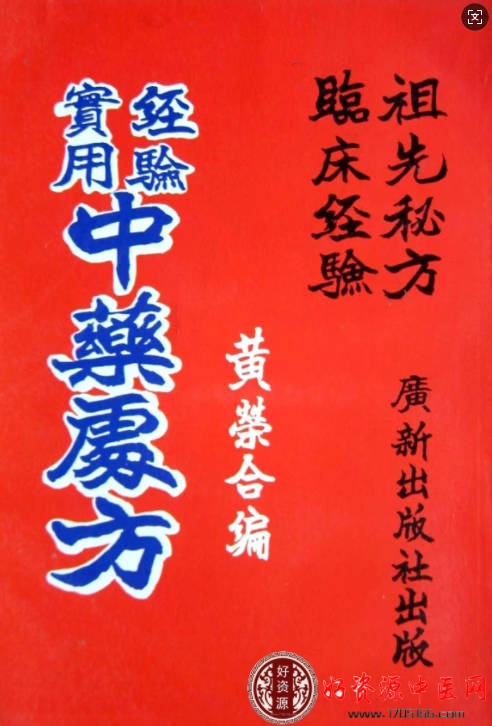 祖先秘方
臨床经驗
廣新出版社出版
黄荣合编
经驗
實用
中藥處方
好资源
好资源中医网